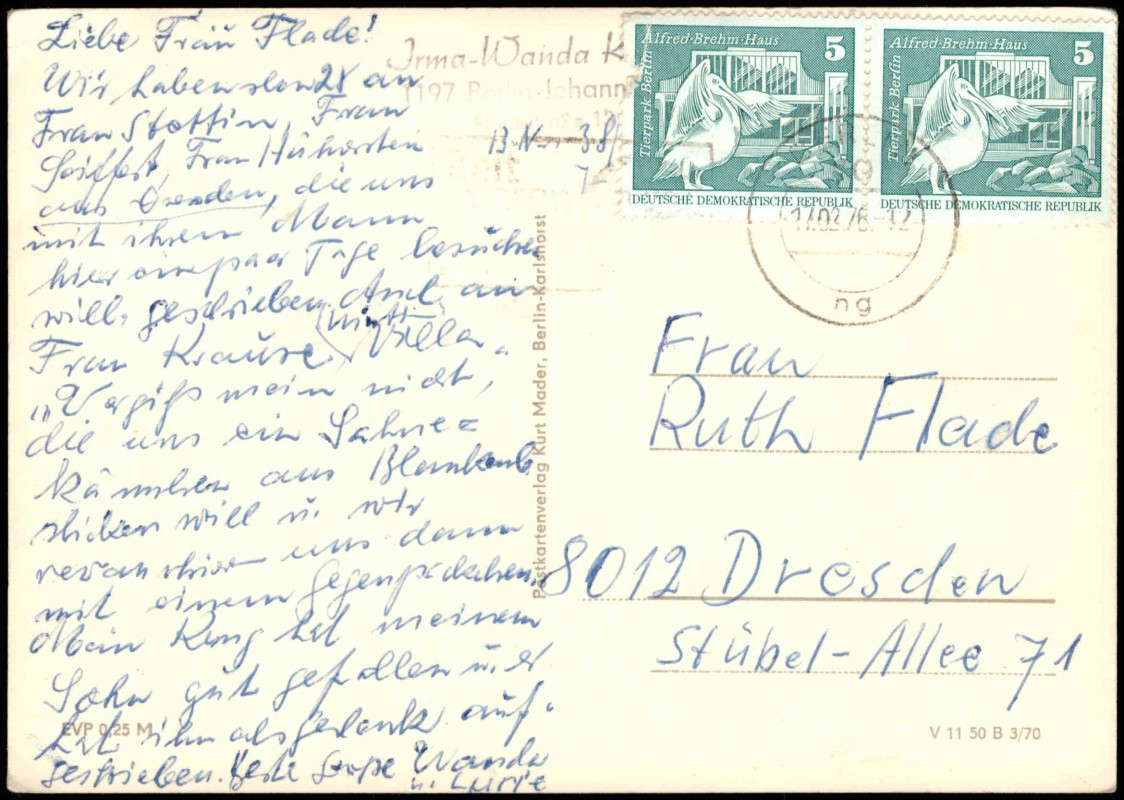 Liebe Frau Flade!
Wir haben schon 2x an
Frau Stettin, Frau
Seiffert, Frau
aus Dresden, die uns
mit ihrem Mann
hier ein paar Tage besuchen
will, geschrieben. Auch an
Frau Krause, Villa
"Vergiß mein nicht,
die uns ein Sahne=
kännchen aus Blankenb.
schicken will u. wir
revanchieren uns dann
mit einem Gegenpäckchen.
Mein Ring hat meinem
Sohn gut gefallen u. er
hat ihn als auf-
geschrieben. Beste Grüße Wanda
u.
Irma-Wanda K
1197 Berlin-Johann
EVP 0,25 M
Postkartenverlag Kurt Mader, Berlin-Karlshorst
Alfred-Brehm-Haus 5
Tierpark Berlin
DEUTSCHE DEMOKRATISCHE REPUBLIK
Alfred-Brehm-Haus 5
Tierpark Berlin
DEUTSCHE DEMOKRATISCHE REPUBLIK
ng
Frau
Ruth Flade
8012 Dresden
Stübel-Allee 71
V 11 50 B 3/70